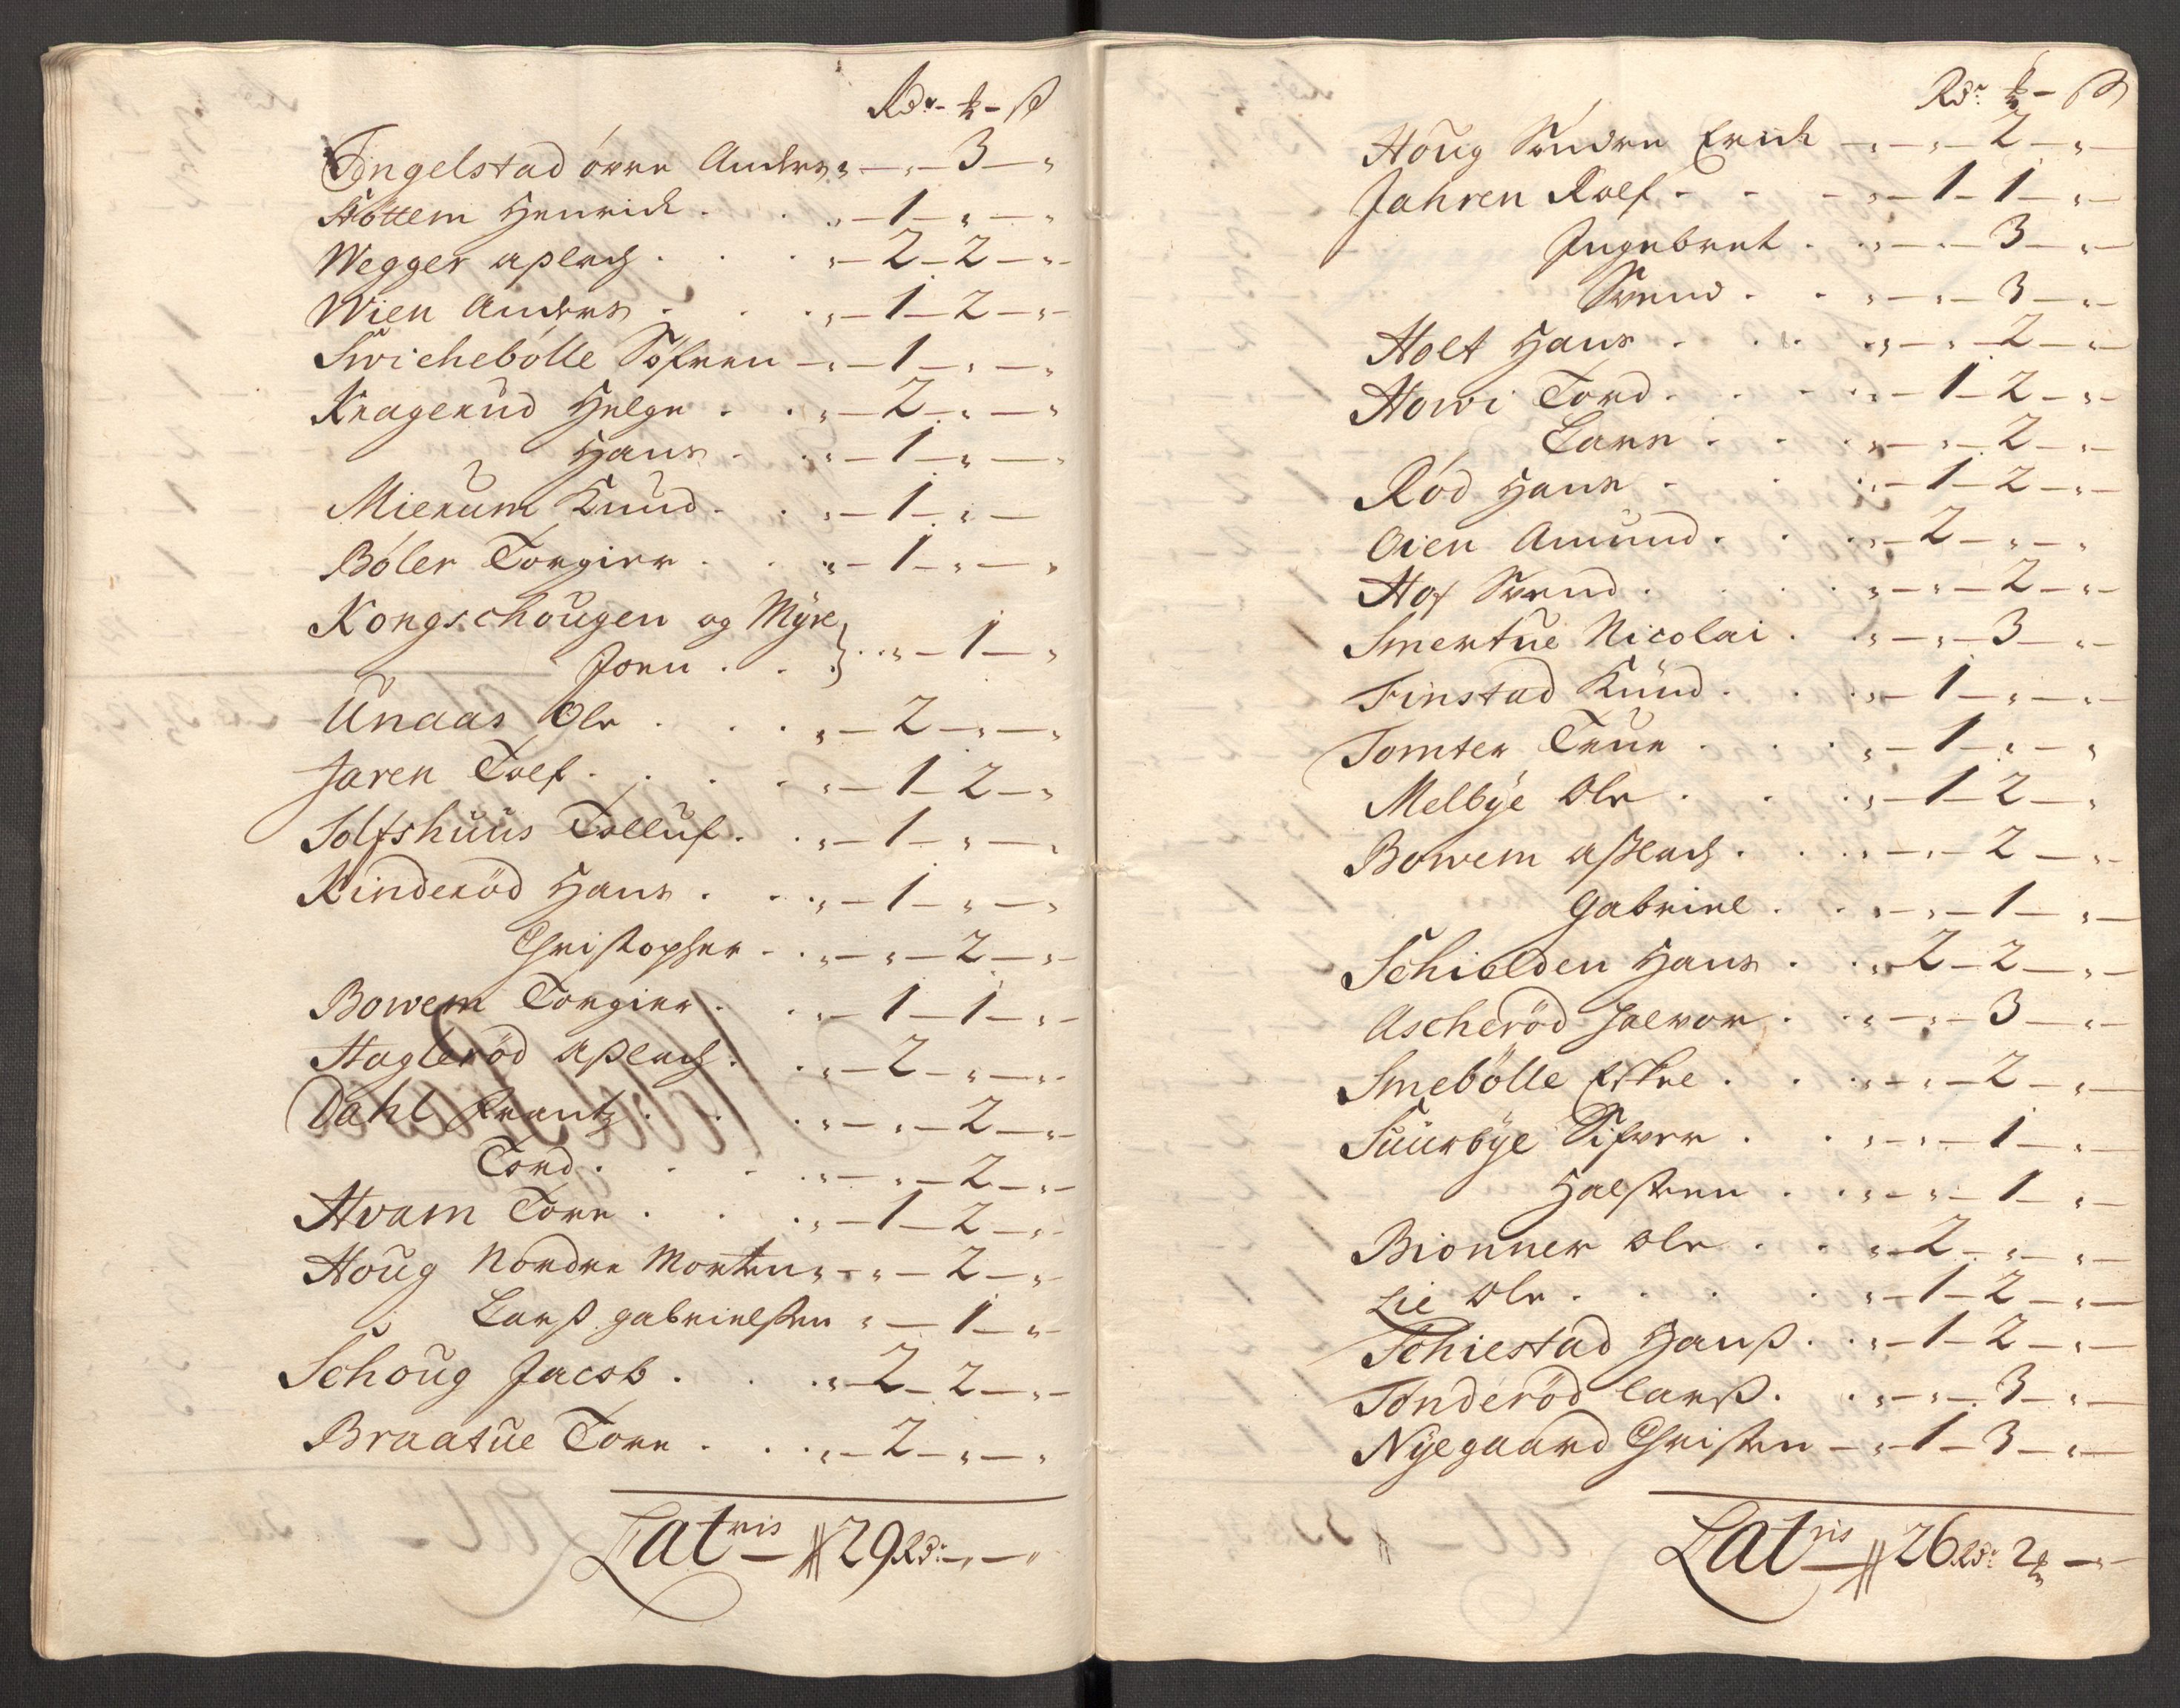 Rdr - ₰ - ß
Engelstad öfre Anders „ — „ — 3 — „
Stöttem Henrich . . „ — 1 — „ — „
Wegger Aßlach . . . „ — 2 — 2 — „
Wien Anders . . . „ — 1 — 2 — „
Swichebölle Söfren — „ — 1 — „ — „
Kragerud Helge . . „ — 2 — „ — „
Hans . . „ — 1 — „ — „
Mierum Knud . . „ — 1 — „ —
Böler Torgier . . „ — 1 — „ — „
Kongschougen og Myre
Jorn . . } . . „ — 1 — „
Unaas Ole . . . „ — 2 — „ — „
Jaren Toef . . . „ — 1 — 2 — „
Solfshuus Tolluf . . „ — 1 — „ — „
Kinderöd Hans . . . „ — 1 — „ — „
Christopher . . „ — „ — 2 — „
Bowem Torgier . . . „ — 1 — 1 — „
Hagleröd Aßlach . . „ — 2 — „ — „
Dahl Frantz . . . „ — „ — 2 — „
Tord . . . . „ — „ — 2 — „
Hvam Tore . . . „ — 1 — 2 — „
Houg Nordre Morten „ — „ — 2 — „
Larß gabrielßen „ — 1 — „
Schoug Jacob . . . „ — 2 — 2 — „
Braatue Tore . . . „ — 2 — „ — „
Latris — 29 Rdr — „ — „
Rdr ₰ — ß
Houg Söndre Erich — „ — „ — 2 — „
Jahren Roef - - - „ — 1 — 1 — „
Ingebret . . „ — „ — 3 — „
Svend . . „ — „ — 3 — „
Holt Hans . . . „ — „ — 2 — „
Howi Tord . . . „ — 1 — 2 — „
Lars . . . „ — „ — 2 — „
Röd Hans . . . „ — 1 — 2 — „
Oien Amund . . . „ — 2 — „ — „
Hof Svend . . . „ — „ — 2 — „
Smertue Nicolai . . „ — „ — 3 — „
Finstad Knud . . . „ — 1 — „ — „
Tomter True . . . „ — 1 — „ — „
Melbye Ole . . . „ — 1 — 2 — „
Bowem Aßlach . . . „ — „ — 2 — „
Gabriel . . „ — „ — 1 — „
Schielden Hans . . „ 2 — 2 — „
Ascheröd Halvor . . „ — „ — 3 — „
Smebölle Eskel . . „ — „ — 2 — „
Suurbye Sifver . . „ — „ — 1 — „
Halsten . . „ — „ — 1 — „
Bionner Ole . . „ — 2 — „ — „
Lie Ole . . . . „ — 1 — 2 — „
Schiestad Hanß . . „ — 1 — 2 — „
Tönderöd Larß . . „ — „ — 3 — „
Nyegaard Christen — „ — 1 — 3 — „
Latris — 26 Rdr 2 ₰ — „